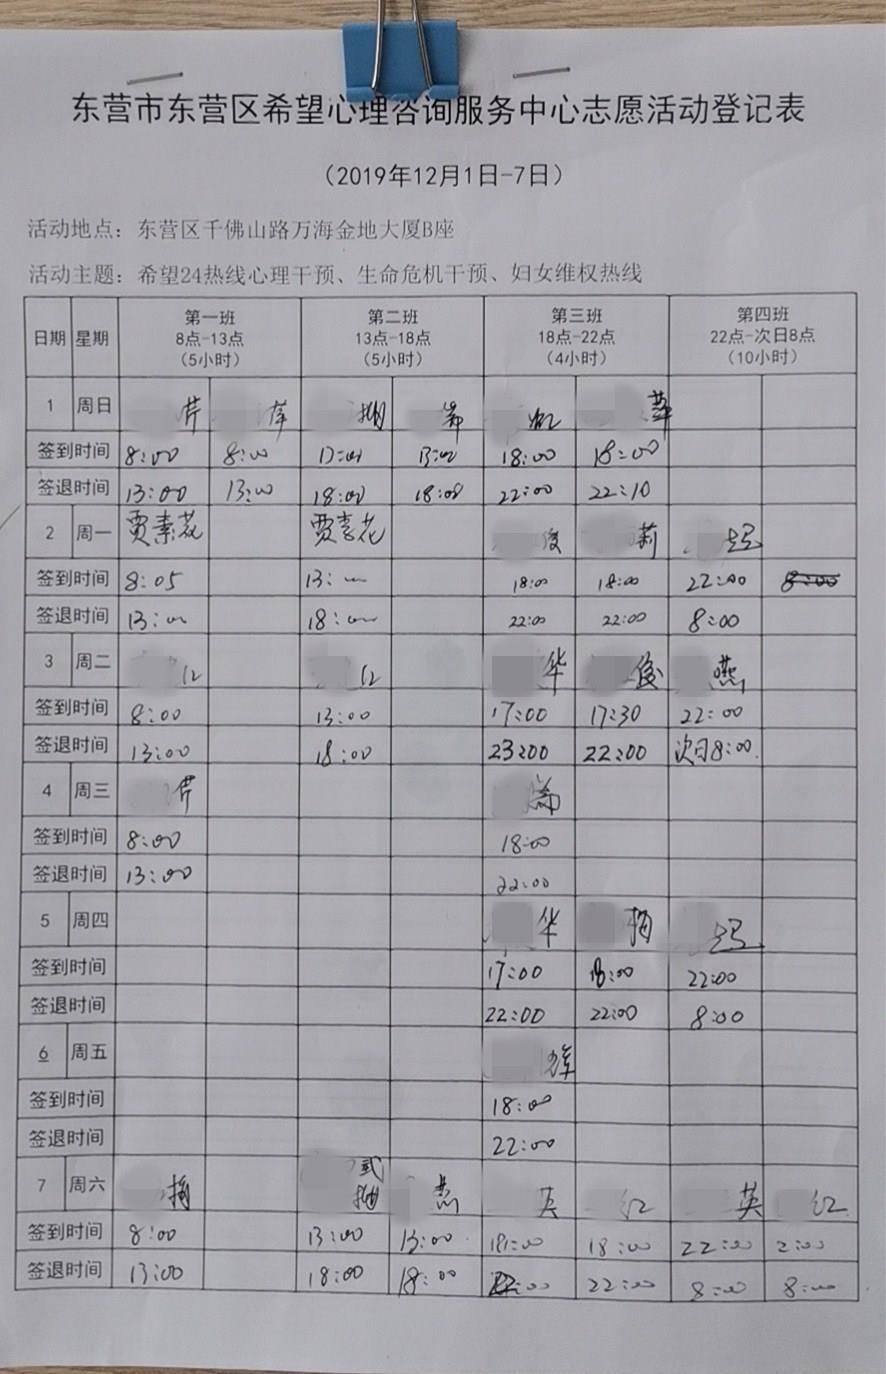 东营市东营区希望心理咨询服务中心志愿活动登记表
（2019年12月1日-7日）
活动地点：东营区千佛山路万海金地大厦B座
活动主题：希望24热线心理干预、生命危机干预、妇女维权热线
日期 星期 第一班 8点-13点 （5小时） 第二班 13点-18点 （5小时） 第三班 18点-22点 （4小时） 第四班 22点-次日8点 （10小时）
1 周日 芹 萍
签到时间 8:00 8:00 13:00 13:00 18:00 18:00
签退时间 13:00 13:00 18:00 18:00 22:00 22:10
2 周一 贾素花 贾素花 俊 莉
签到时间 8:05 13:00 18:00 18:00 22:00
签退时间 13:00 18:00 22:00 22:00 8:00
3 周二 红 红 华 俊 燕
签到时间 8:00 13:00 17:00 17:30 22:00
签退时间 13:00 18:00 23:00 22:00 次日8:00.
4 周三 芹
签到时间 8:00 18:00
签退时间 13:00 22:00
5 周四 华
签到时间 17:00 18:00 22:00
签退时间 22:00 22:00 8:00
6 周五
签到时间 18:00
签退时间 22:00
7 周六 燕 英 红 英 红
签到时间 8:00 13:00 13:00 18:00 18:00 22:00 2:00
签退时间 13:00 18:00 18:00 22:00 22:00 8:00 8:00